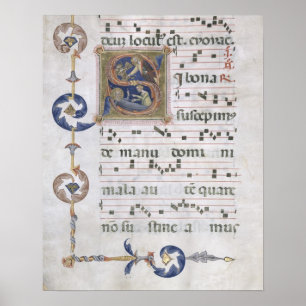 deuz locut' est. euouae
Si bona
suscepimꝰ
de manu domini
mala autē quare
nō sustineamus